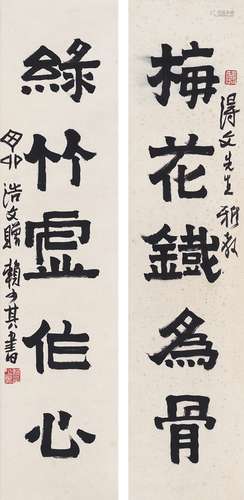 梅花鐵為骨
得文先生雅教
綠竹虛作心
浩文贈 賴少其書